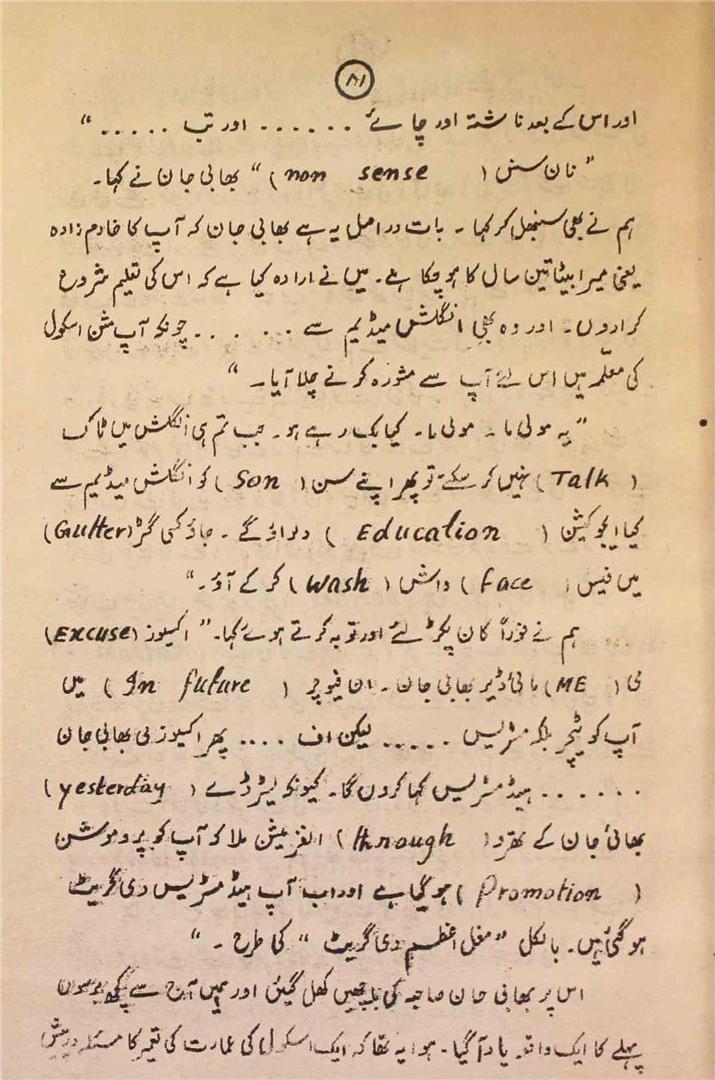 ۱۸۱
اور اس کے بعد ناشتہ اور چائے ...... اور تب ..... "
" نان سنس ( non sense ) " بھابی جان نے کہا۔
ہم نے بھی سنبھل کر کہا ۔ بات دراصل یہ ہے بھابی جان کہ آپ کا خادم زادہ
یعنی میرا بیٹا تین سال کا ہو چکا ہے۔ میں نے ارادہ کیا ہے کہ اس کی تعلیم شروع
کرادوں۔ اور وہ بھی انگلش میڈیم سے ...... چونکہ آپ مشن اسکول
کی معلّمہ ہیں اس لئے آپ سے مشورہ کرنے چلا آیا۔ "
" یہ مولی ما۔ مولی ما۔ کیا بک رہے ہو۔ جب تم ہی انگلش میں ٹاک
( Talk ) نہیں کر سکتے تو پھر اپنے سن ( Son ) کو انگلش میڈیم سے
کیا ایجوکیشن ( Education ) دلواؤ گے ۔ جاؤ کسی گٹر (Gutter)
میں فیس ( face ) واش ( wash ) کر کے آؤ۔ "
ہم نے فوراً کان پکڑ لئے اور توبہ کرتے ہوئے کہا۔ " اکسیوز (EXCUSE)
می ( ME ) مائی ڈیر بھابی جان ۔ ان فیوچر ( In future ) میں
آپ کو ٹیچر بلکہ مسٹریس ..... لیکن اف .... پھر اکسیوز می بھابی جان
...... ہیڈ مسٹریس کہا کروں گا۔ کیونکہ یسٹرڈے ( yesterday )
بھائی جان کے تھرو ( through ) انفرمیشن ملا کہ آپ کو پروموشن
( Promotion ) ہو گیا ہے اور اب آپ ہیڈ مسٹریس دی گریٹ
ہو گئی ہیں۔ بالکل " مغل اعظم دی گریٹ " کی طرح ۔ "
اس پر بھابی جان صاحبہ کی بانچھیں کھل گئیں اور ہمیں آج سے کچھ برسوں
پہلے کا ایک واقعہ یاد آ گیا ۔ ہوا یہ تھا کہ ایک اسکول کی عمارت کی تعمیر کا مسئلہ درپیش